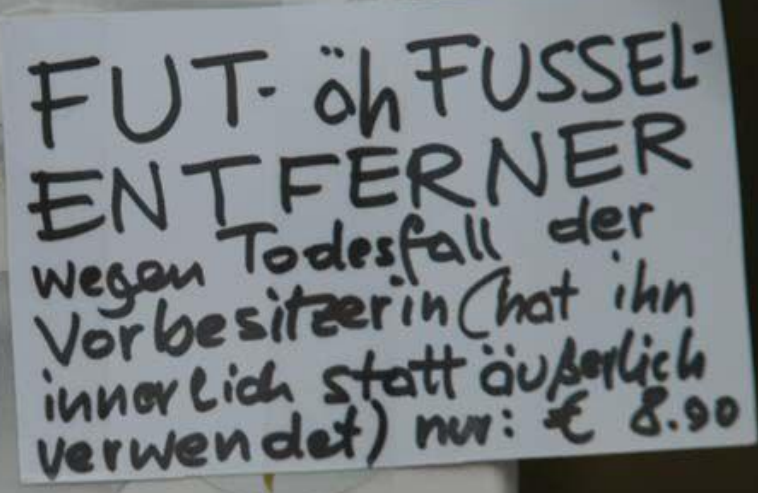 FUT- äh FUSSEL-
ENTFERNER
wegen Todesfall der
Vorbesitzerin (hat ihn
innerlich statt äußerlich
verwendet) nur: € 8.90